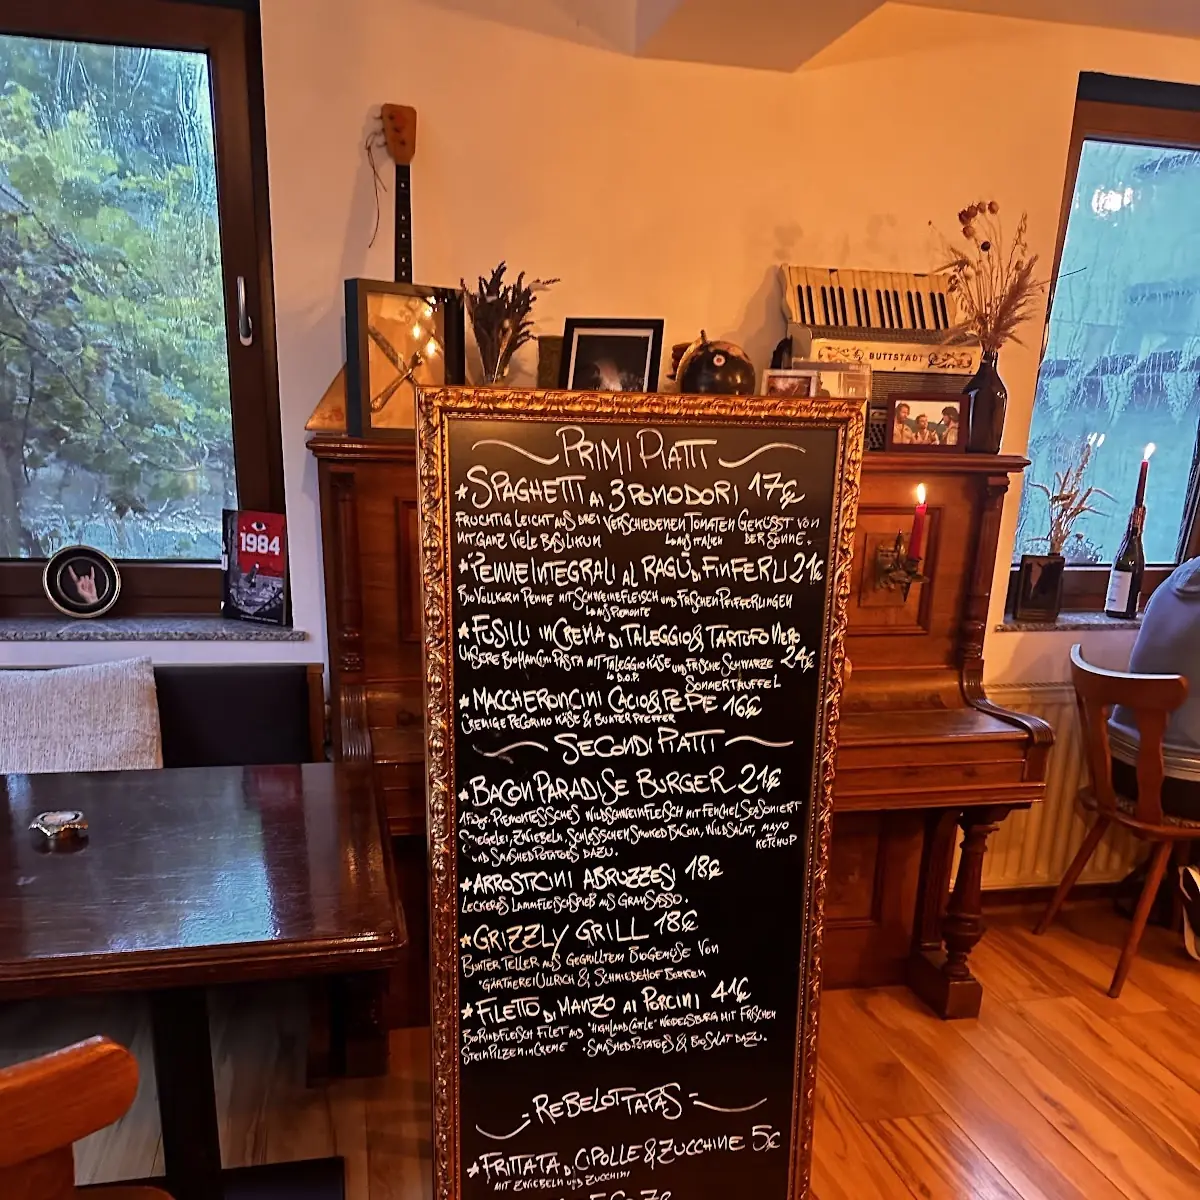 PRIMI PIATTI
* SPAGHETTI AI 3 POMODORI 17€
FRUCHTIG LEICHT AUS DREI VERSCHIEDENEN TOMATEN GEKÜSST VON
MIT GANZ VIELE BASILIKUM AUS ITALIEN DER SONNE.
* PENNE INTEGRALI AL RAGÙ DI FINFERLI 21€
BIO VOLLKORN PENNE MIT SCHWEINEFLEISCH UND FRISCHEN PFIFFERLINGEN
AUS PIEMONTE
* FUSILLI IN CREMA DI TALEGGIO & TARTUFO NERO
UNSERE BIO MANCINI PASTA MIT TALEGGIO KÄSE UND FRISCHE SCHWARZE 24€
D.O.P. SOMMERTRÜFFEL
* MACCHERONCINI CACIO & PEPE 16€
CREMIGE PECORINO KÄSE & BUNTER PFEFFER
SECONDI PIATTI
* BACON PARADISE BURGER 21€
180gr. PIEMONTESISCHES WILDSCHWEINFLEISCH MIT FENCHEL SEASONIERT
SPIEGELEI, ZWIEBELN, SCHLESISCHEN SMOKED BACON, WILDSALAT, MAYO
KETCHUP
UND SMASHED POTATOES DAZU.
* ARROSTICINI ABRUZZESI 18€
LECKERES LAMMFLEISCHSPIEß AUS GRAN SASSO.
* GRIZZLY GRILL 18€
BUNTER TELLER AUS GEGRILLTEM BIOGEMÜSE VON
"GÄRTNEREI ULLRICH & SCHMIEDEHOF BERKEN
* FILETTO DI MANZO AI PORCINI 41€
BIO RINDFLEISCH FILET AUS "HIGHLAND CATTLE" MIT FRISCHEN
STEINPILZEN IN CREME • SMASHED POTATOES & BIO SALAT DAZU.
- REBELOT TAPAS -
* FRITTATA DI CIPOLLE & ZUCCHINE 5€
MIT ZWIEBELN UND ZUCCHINI
1984
BUTTSTÄDT